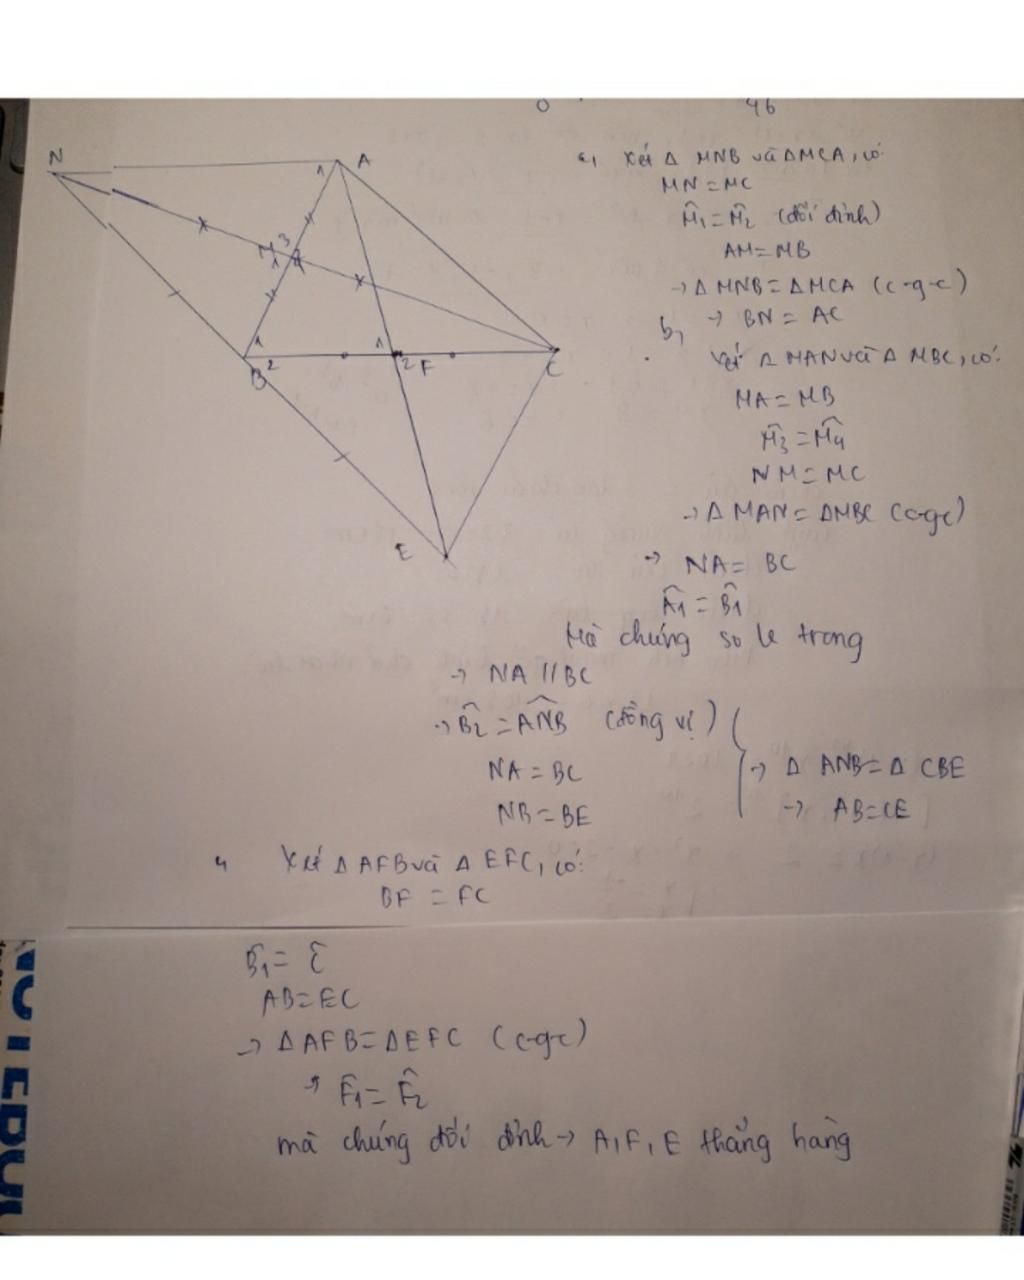 46
N
A
1
M 3
1
1
B 2
1
2 F
C
E
a, Xét Δ MNB và ΔMCA, có
MN = MC
M̂1 = M̂2 (đối đỉnh)
AM = MB
→ Δ MNB = ΔMCA (c-g-c)
b, → BN = AC
Xét Δ MAN và Δ MBC, có:
MA = MB
M̂3 = M̂4
NM = MC
→ Δ MAN = ΔMBC (c-g-c)
→ NA = BC
Â1 = B̂1
Mà chúng so le trong
→ NA // BC
→ B̂2 = ANB̂ (đồng vị)
NA = BC
NB = BE
→ Δ ANB = Δ CBE
→ AB = CE
Xét Δ AFB và Δ EFC, có:
BF = FC
B̂1 = Ĉ
AB = EC
→ Δ AFB = Δ EFC (c-g-c)
→ F̂1 = F̂2
mà chúng đối đỉnh → A, F, E thẳng hàng